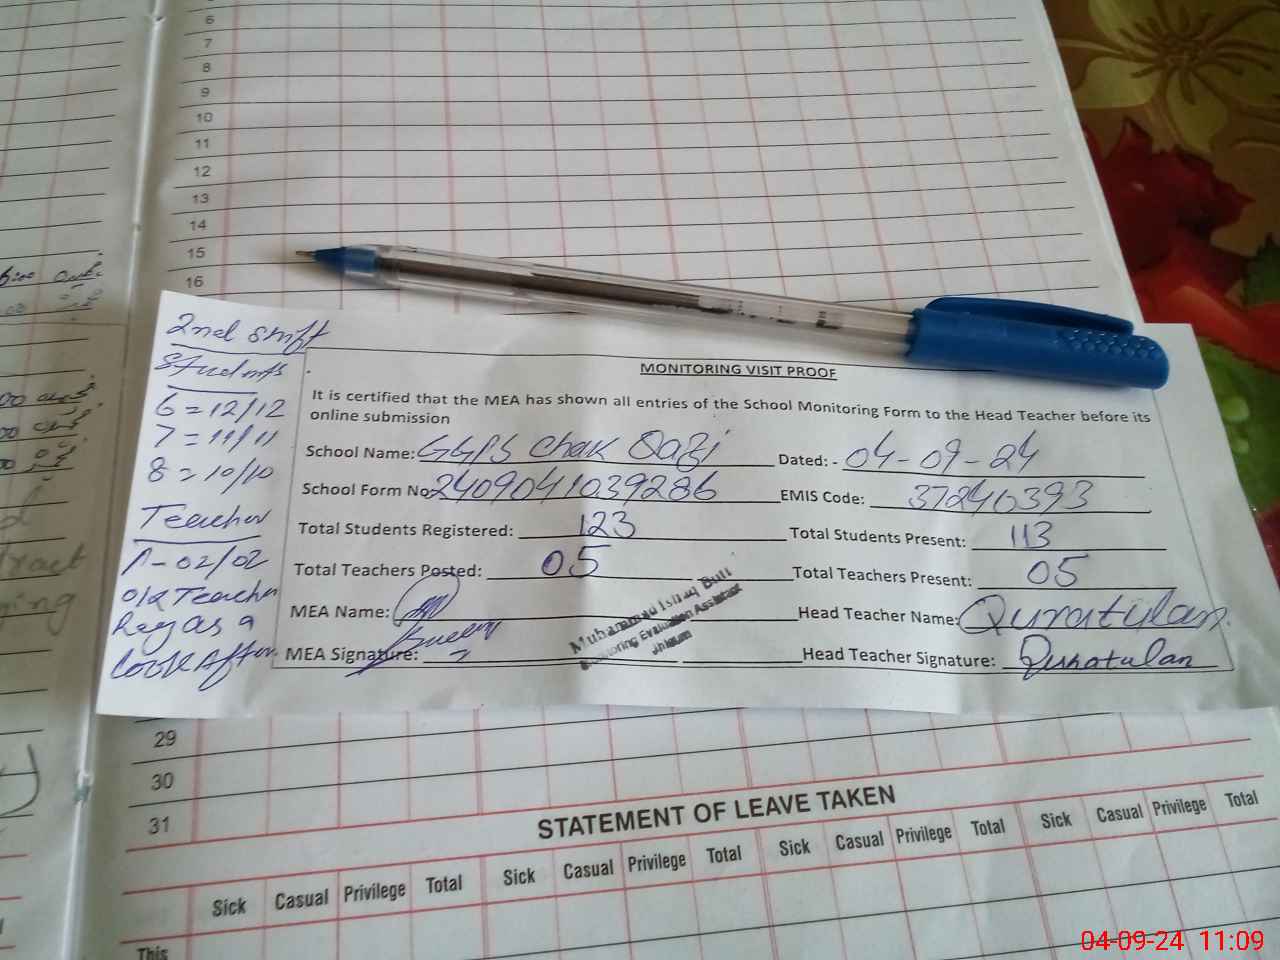 6
7
8
9
10
11
12
13
14
15
16
2nd shift
Students
6 = 12/12
7 = 11/11
8 = 10/10
Teacher
A - 02/02
Teacher
as a
Look After
MONITORING VISIT PROOF
It is certified that the MEA has shown all entries of the School Monitoring Form to the Head Teacher before its
online submission
School Name: GGPS Chak Qazi Dated: - 04-09-24
School Form No 2409041039286 EMIS Code: 37240393
Total Students Registered: 123 Total Students Present: 113
Total Teachers Posted: 05 Total Teachers Present: 05
MEA Name: Head Teacher Name: Quratulan
MEA Signature: Head Teacher Signature: Quratulan
Muhammad Ishaq Butt
Monitoring Evaluation Assistant
Jhelum
29
30
31
STATEMENT OF LEAVE TAKEN
Sick Casual Privilege Total Sick Casual Privilege Total Sick Casual Privilege Total Sick Casual Privilege Total
This
04-09-24 11:09